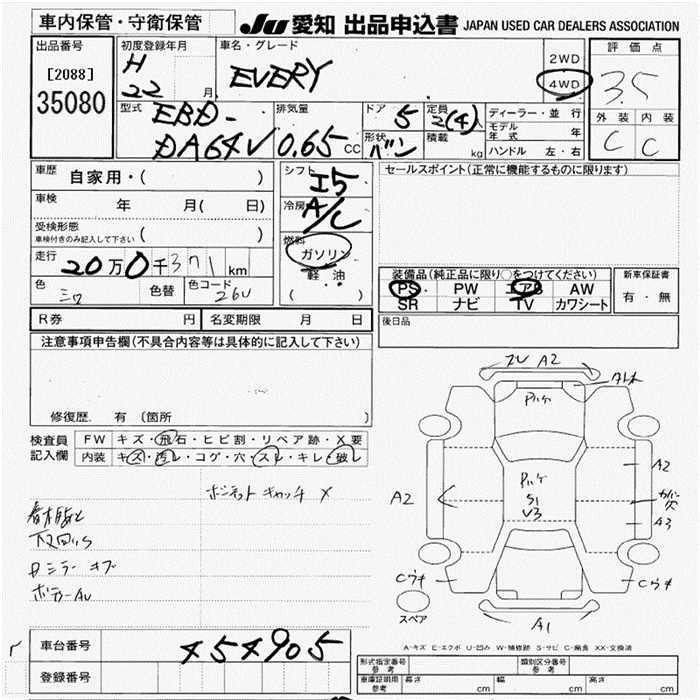 車内保管・守衛保管
JU 愛知 出品申込書 JAPAN USED CAR DEALERS ASSOCIATION
出品番号
[2088]
35080
初度登録年月
H
22 月
車名・グレード
EVERY
2WD
4WD
評価点
3.5
外装 内装
C C
型式
EBD-
DA64V
排気量
0.65 CC
ドア 5
形状 バン
定員 2(4)人
積載 kg
ディーラー・並行
モデル年式 年
ハンドル 左・右
車歴 自家用・( )
車検 年 月( 日)
受検形態
車検付きのみ記入して下さい ( )
走行 20万0千371km
色
色替
色コード 26U
シフト
I5
冷房
A/C
燃料
ガソリン
軽油
( )
セールスポイント(正常に機能するものに限ります)
装備品(純正品に限り○をつけてください)
PS PW エアB AW
SR ナビ TV カワシート
新車保証書
有・無
後日品
R券 円 名変期限 月 日
注意事項申告欄(不具合内容等は具体的に記入して下さい)
修復歴 有(箇所 )
検査員記入欄
FW キズ・飛石・ヒビ割・リペア跡・X要
内装 キズ・汚レ・コゲ・穴・スレ・キレ・破レ
ボンネットキャッチ X
下回り
ミラー キズ
A2
アトホ
パッチ
A2
パッチ
S1
V3
A2
カバー欠
A3
Cウキ
Cウキ
スペア
A1
A-キズ E-エクボ U-凹み W-補修跡 S-サビ C-腐食 XX-交換済
車台番号 454905
登録番号
形式指定番号 参考
類別区分番号 参考
車庫証明用 参考 長さ cm 幅 cm 高さ cm